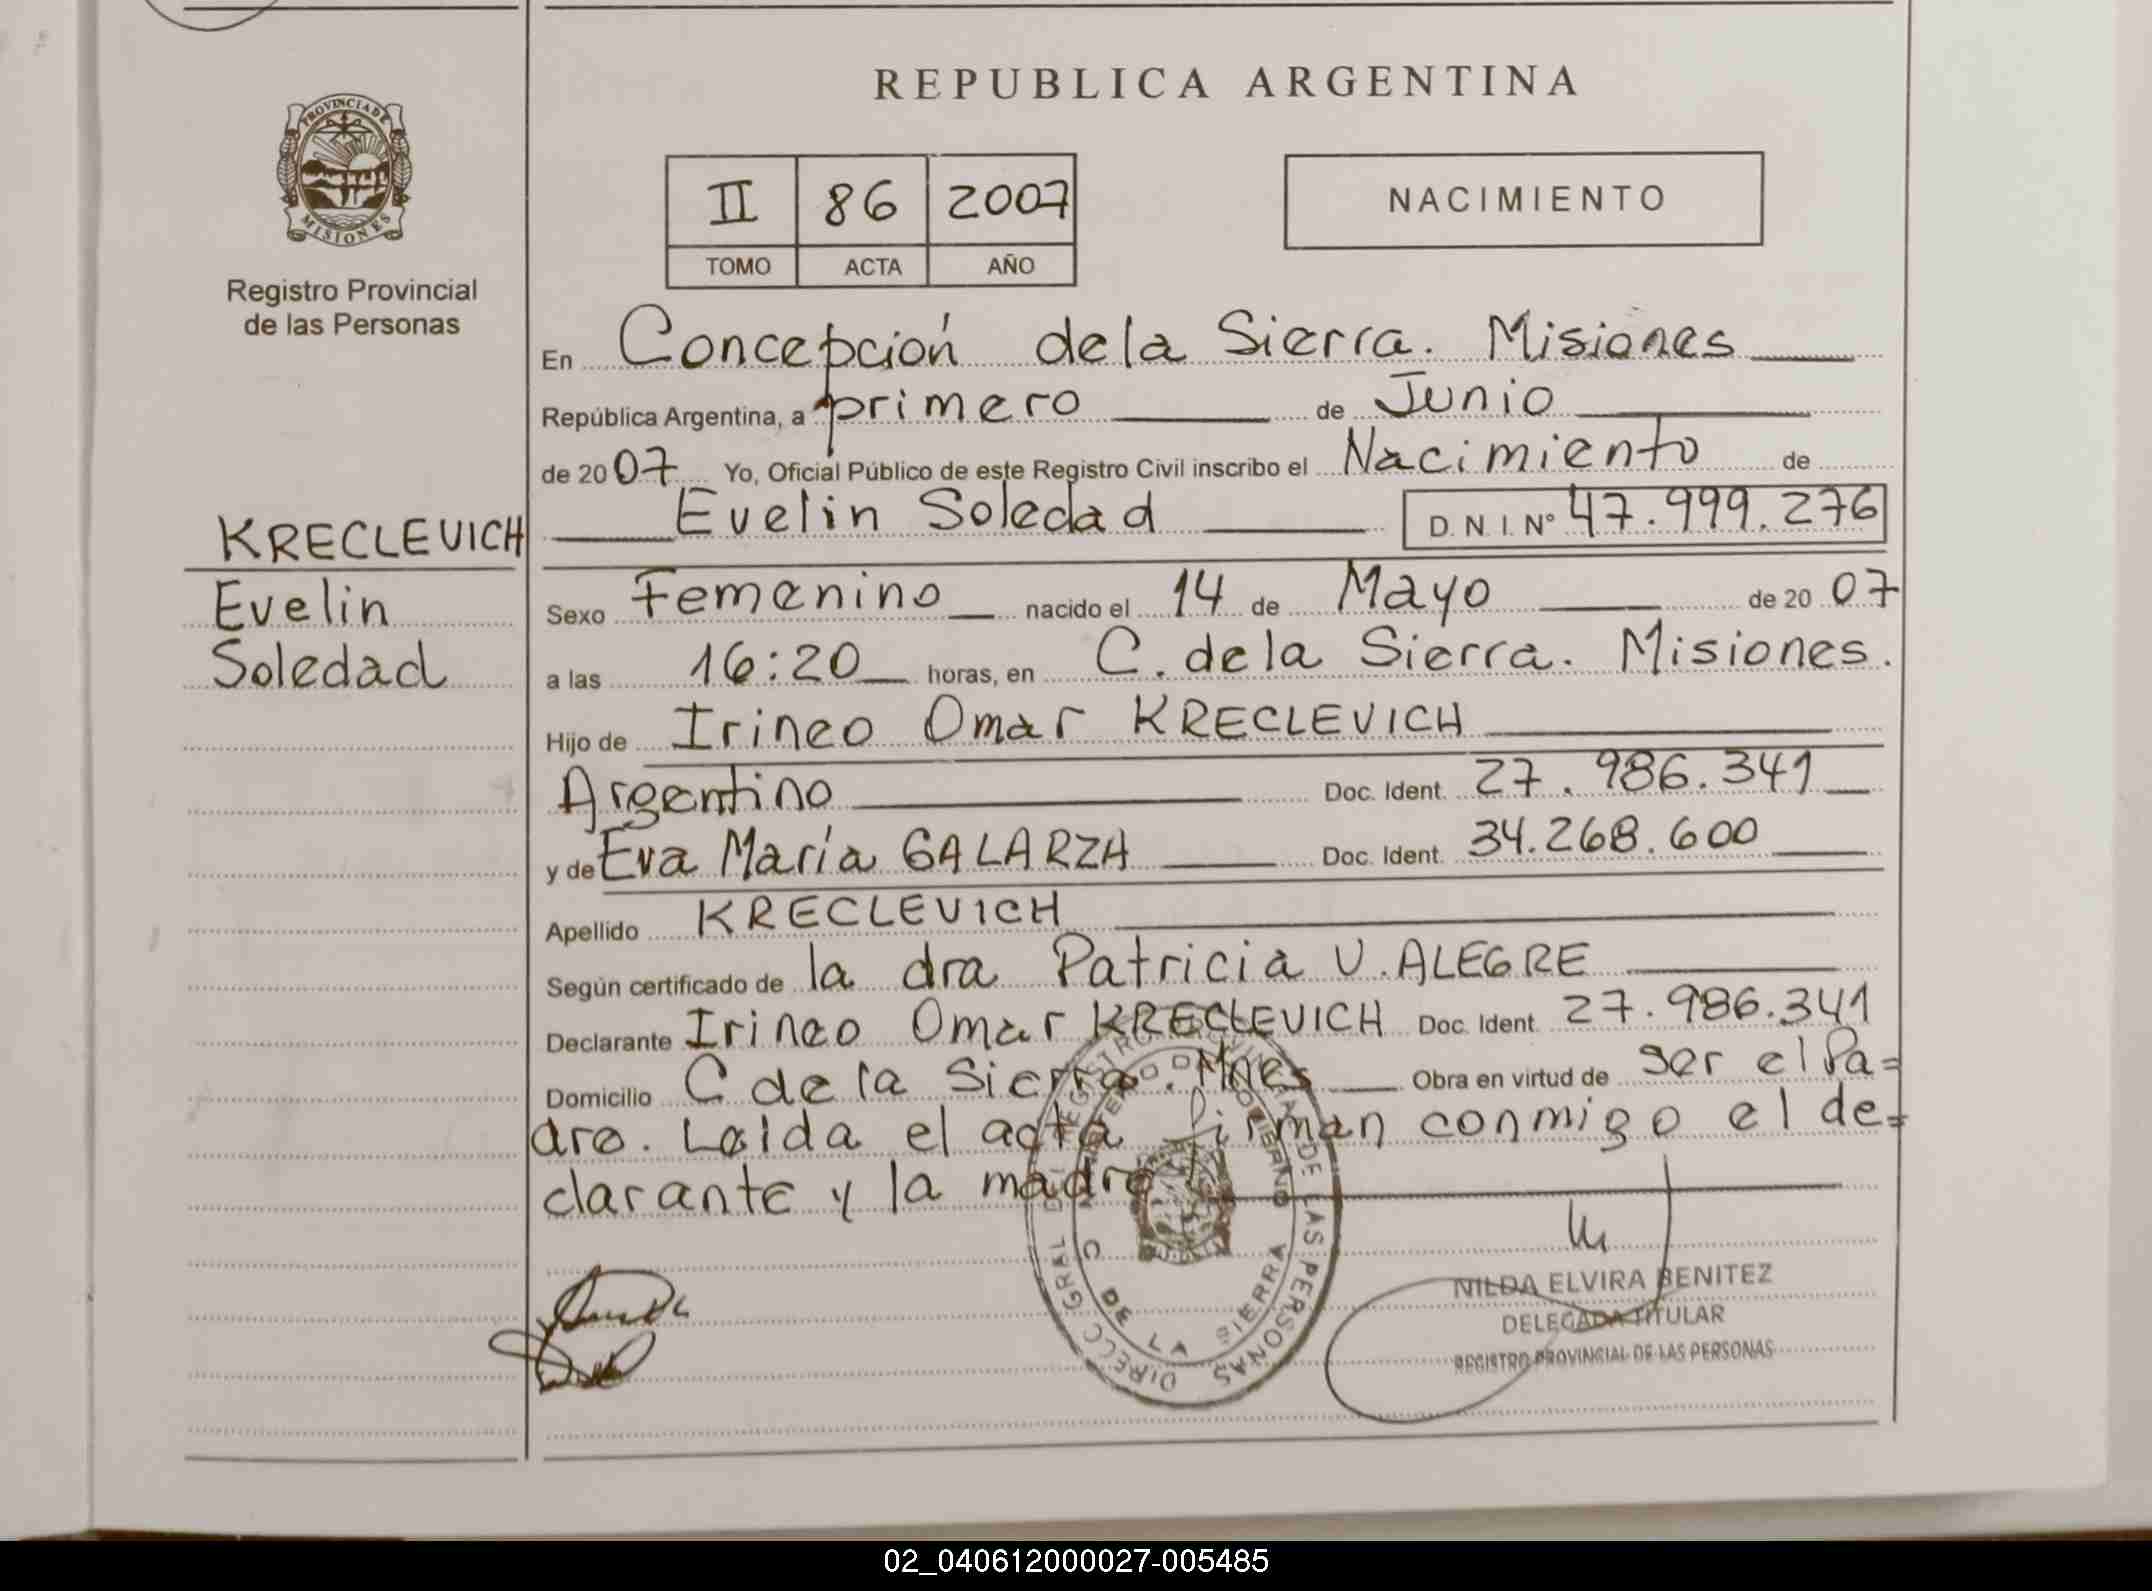 REPUBLICA ARGENTINA
PROVINCIA DE
MISIONES
Registro Provincial
de las Personas
II 86 2007
TOMO ACTA AÑO
NACIMIENTO
En Concepción de la Sierra. Misiones
República Argentina, a primero de Junio
de 2007 Yo, Oficial Público de este Registro Civil inscribo el Nacimiento de
KRECLEVICH Evelin Soledad D. N. I. N° 47.999.276
Evelin Sexo Femenino nacido el 14 de Mayo de 2007
Soledad a las 16:20 horas, en C. de la Sierra. Misiones.
Hijo de Irineo Omar KRECLEVICH
Argentino Doc. Ident. 27.986.341
y de Eva María GALARZA Doc. Ident. 34.268.600
Apellido KRECLEVICH
Según certificado de la dra Patricia V. ALEGRE
Declarante Irineo Omar KRECLEVICH Doc. Ident. 27.986.341
Domicilio C de la Sierra. Mnes Obra en virtud de ser el Pa=
dre. Leida el acta firman conmigo el de=
clarante y la madre
DIRECC GRAL DEL REGISTRO DE LAS PERSONAS
C DE LA SIERRA
NILDA ELVIRA BENITEZ
DELEGADA TITULAR
REGISTRO PROVINCIAL DE LAS PERSONAS
02_040612000027-005485